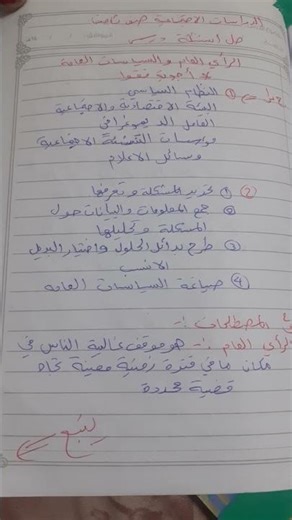 الدراسات الاجتماعية صف ثامن
حل اسئلة درس
الرأي العام والسياسات العامة
لا أجوبة فقط
ج1/ ① النظام السياسي
البيئة الاقتصادية والاجتماعية
العامل الديموغرافي
مؤسسات التنشئة الاجتماعية
وسائل الاعلام
② ① تحديد المشكلة وتعريفها
② جمع المعلومات والبيانات حول
المشكلة وتحليلها
③ طرح بدائل الحلول واختيار البديل
الأنسب
④ صياغة السياسات العامه
المصطلحات :-
الرأي العام :- هو موقف غالبية الناس في
مكان ما في فترة زمنية معينة تجاه
قضية محددة
يتبع